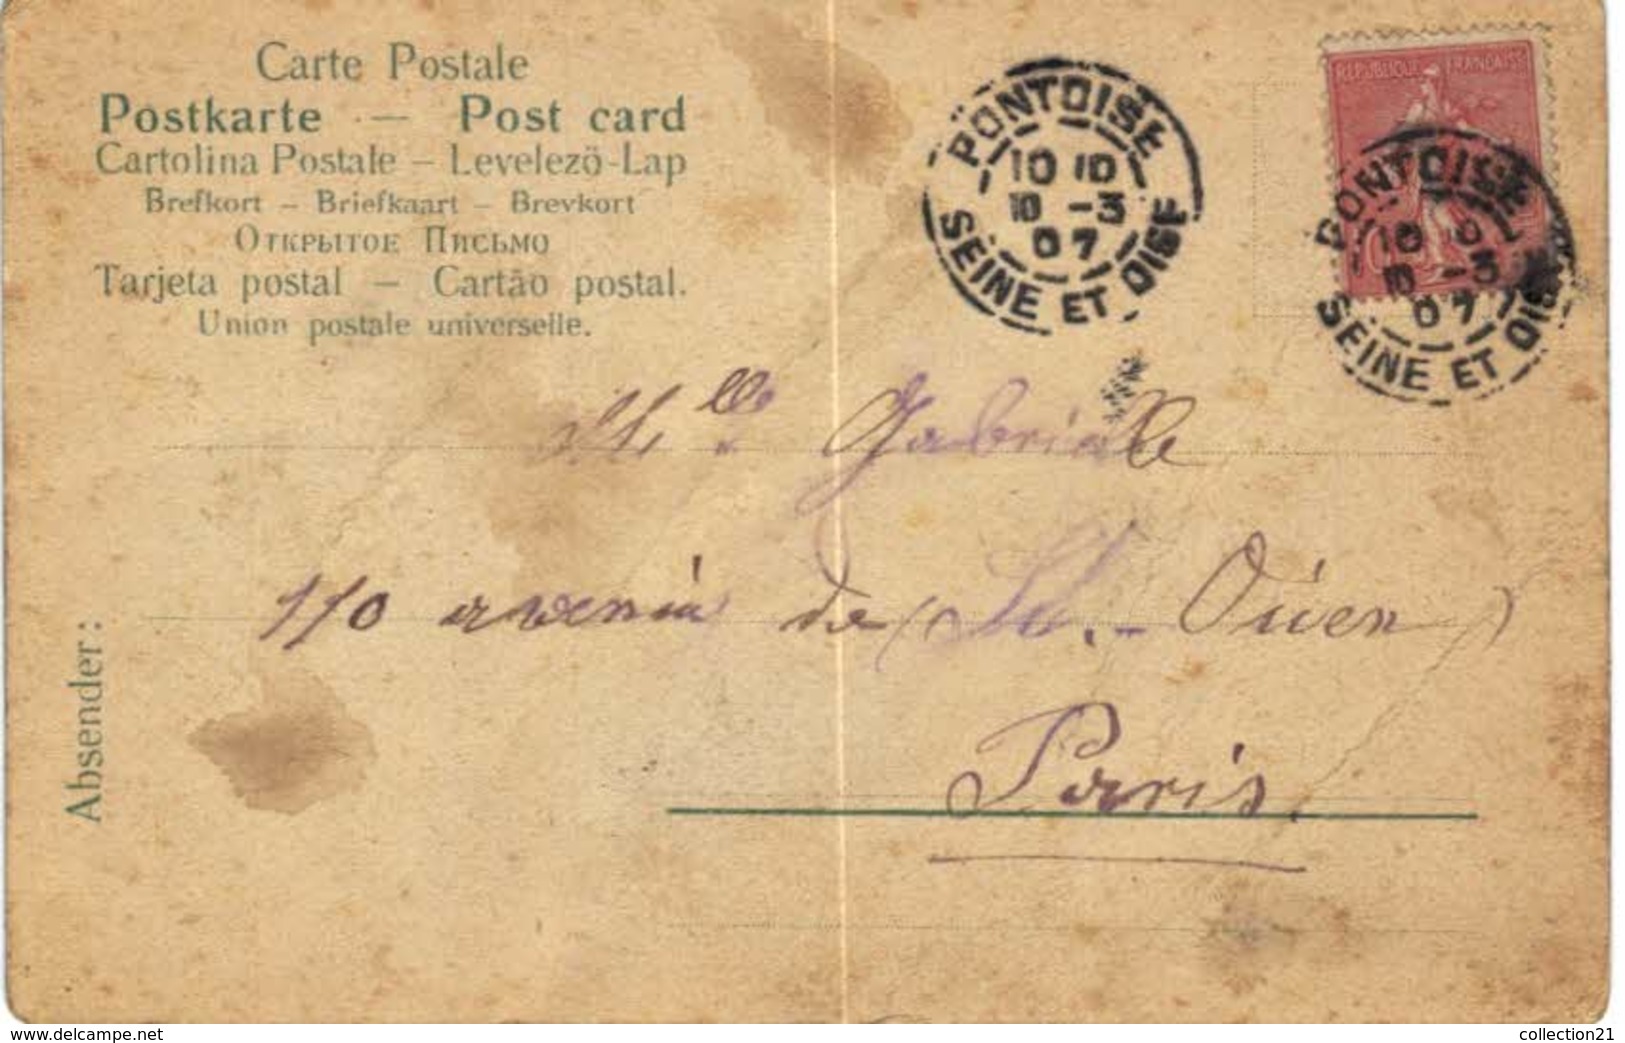 Carte Postale
Postkarte — Post card
Cartolina Postale – Levelező-Lap
Brefkort – Briefkaart – Brevkort
Открытое Письмо
Tarjeta postal — Cartão postal.
Union postale universelle.
Absender:
PONTOISE
10 10
10 -3
07
SEINE ET OISE
REPUBLIQUE FRANÇAISE
10
PONTOISE
10 10
10 -3
07
SEINE ET OISE
Mlle Gabrielle
110 avenue de St.- Ouen
Paris.
www.delcampe.net
collection21